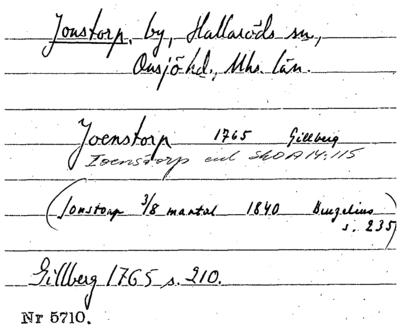 Jonstorp, by, Hallaröds sn.,
Onsjö hd., Mhs. län.
Joenstorp 1765 Gillberg
Ioenstorp enl SkOA14:115
(Jonstorp 3/8 mantal 1840 Bruzelius
s. 235)
Gillberg 1765 s. 210.
Nr 5710.